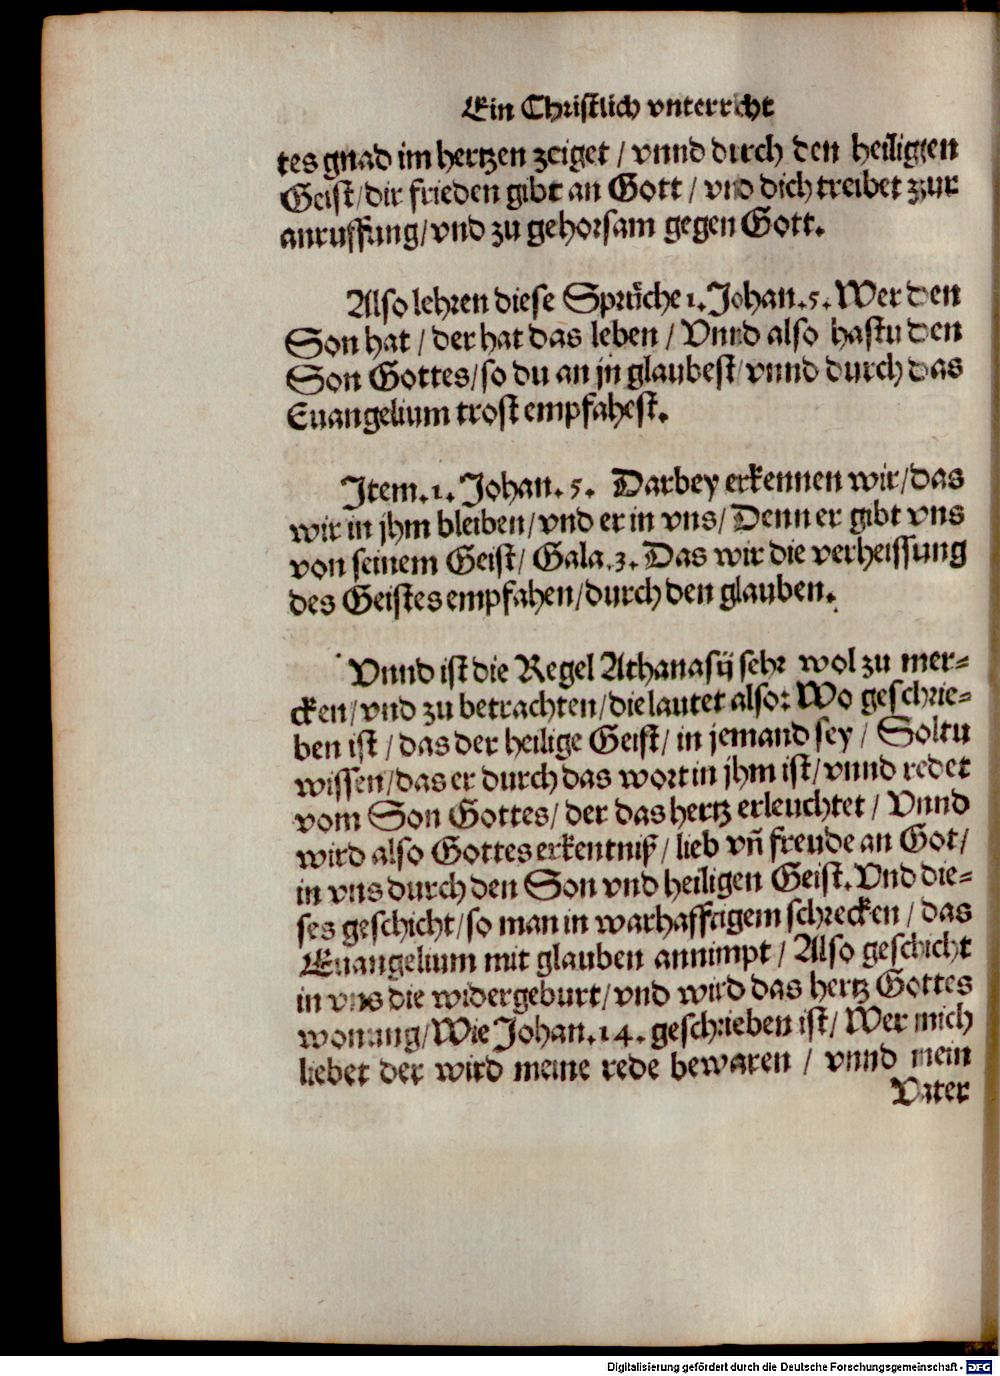 Ein Christlich vnterricht
tes gnad im hertzen zeiget / vnnd durch den heiligen
Geist / dir frieden gibt an Gott / vnd dich treibet zur
anruffung / vnd zu gehorsam gegen Gott.
Also lehren diese Sprüche 1. Johan. 5. Wer den
Son hat / der hat das leben / Vnnd also hastu den
Son Gottes / so du an jn glaubest / vnnd durch das
Euangelium trost empfahest.
Item. 1. Johan. 5. Darbey erkennen wir / das
wir in jhm bleiben / vnd er in vns / Denn er gibt vns
von seinem Geist / Gala. 3. Das wir die verheissung
des Geistes empfahen / durch den glauben.
Vnnd ist die Regel Athanasij sehr wol zu mer-
cken / vnd zu betrachten / die lautet also: Wo geschrie-
ben ist / das der heilige Geist / in jemand sey / Soltu
wissen / das er durch das wort in jhm ist / vnnd redet
vom Son Gottes / der das hertz erleuchtet / Vnnd
wird also Gottes erkentniß / lieb vñ freude an Got /
in vns durch den Son vnd heiligen Geist. Vnd die-
ses geschicht / so man in warhafftigem schrecken / das
Euangelium mit glauben annimpt / Also geschicht
in vns die widergeburt / vnd wird das hertz Gottes
wonung / Wie Johan. 14. geschrieben ist / Wer mich
liebet der wird meine rede bewaren / vnnd mein
Vater
Digitalisierung gefördert durch die Deutsche Forschungsgemeinschaft - DFG